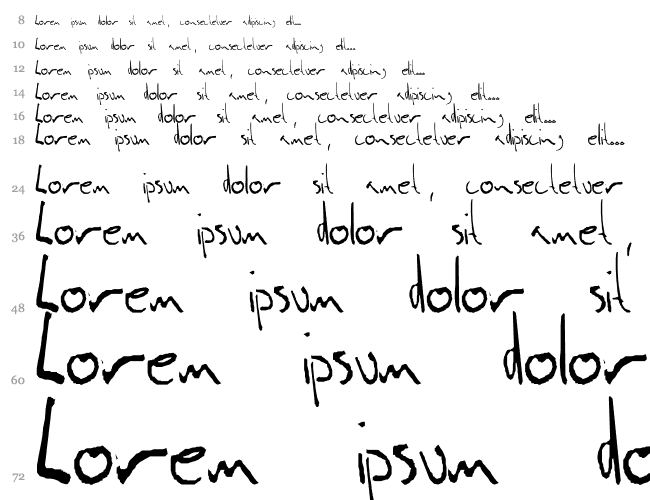 8 Lorem ipsum dolor sit amet, consectetuer adipiscing elit...
10 Lorem ipsum dolor sit amet, consectetuer adipiscing elit...
12 Lorem ipsum dolor sit amet, consectetuer adipiscing elit...
14 Lorem ipsum dolor sit amet, consectetuer adipiscing elit...
16 Lorem ipsum dolor sit amet, consectetuer adipiscing elit...
18 Lorem ipsum dolor sit amet, consectetuer adipiscing elit...
24 Lorem ipsum dolor sit amet, consectetuer
36 Lorem ipsum dolor sit amet,
48 Lorem ipsum dolor sit
60 Lorem ipsum dolor
72 Lorem ipsum do